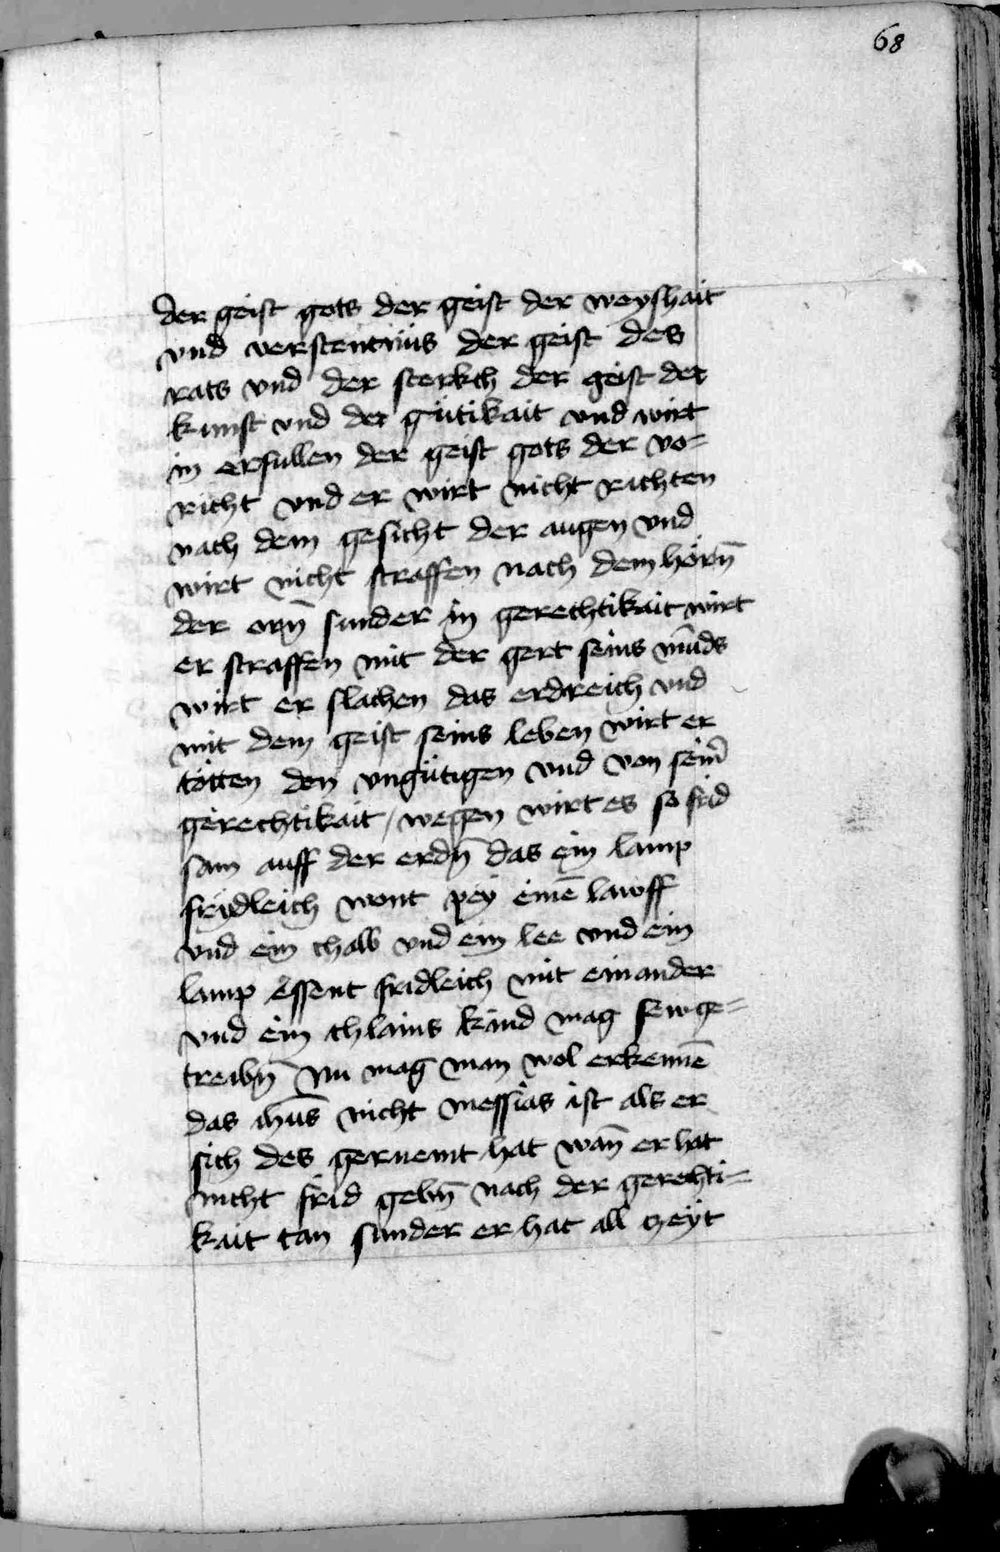 68
der geist gots der geist der weyshait
vnd verstentnüs der geist des
rats vnd der sterkch der geist der
kunst vnd der gütikait vnd wirt
in erfullen der geist gots der vo-
richt vnd er wirt nicht richten
nach dem gesicht der augen vnd
wirt nicht straffen nach dem hörn̄
der orn̄ sunder in gerechtikait wirt
er straffen mit der gert seins mūds
wirt er slachen das erdreich vnd
mit dem geist seins leben wirt er
tötten den vngütigen vnd von sein̄
gerechtikait / wegen wirt es so frid
sam auff der erdn̄ das ein lamp
fridleich wont pey einē lawff
vnd ein chalb vnd ein lee vnd ein
lamp essent fridleich mit einander
vnd ein chlains kind mag sew ge-
treibn̄ Nu mag man wol erkennē
das ihūs nicht messias ist als er
sich des geruemt hat wan̄ er hat
nicht frid gebn̄ nach der gerechti-
kait tan sunder er hat all czeyt